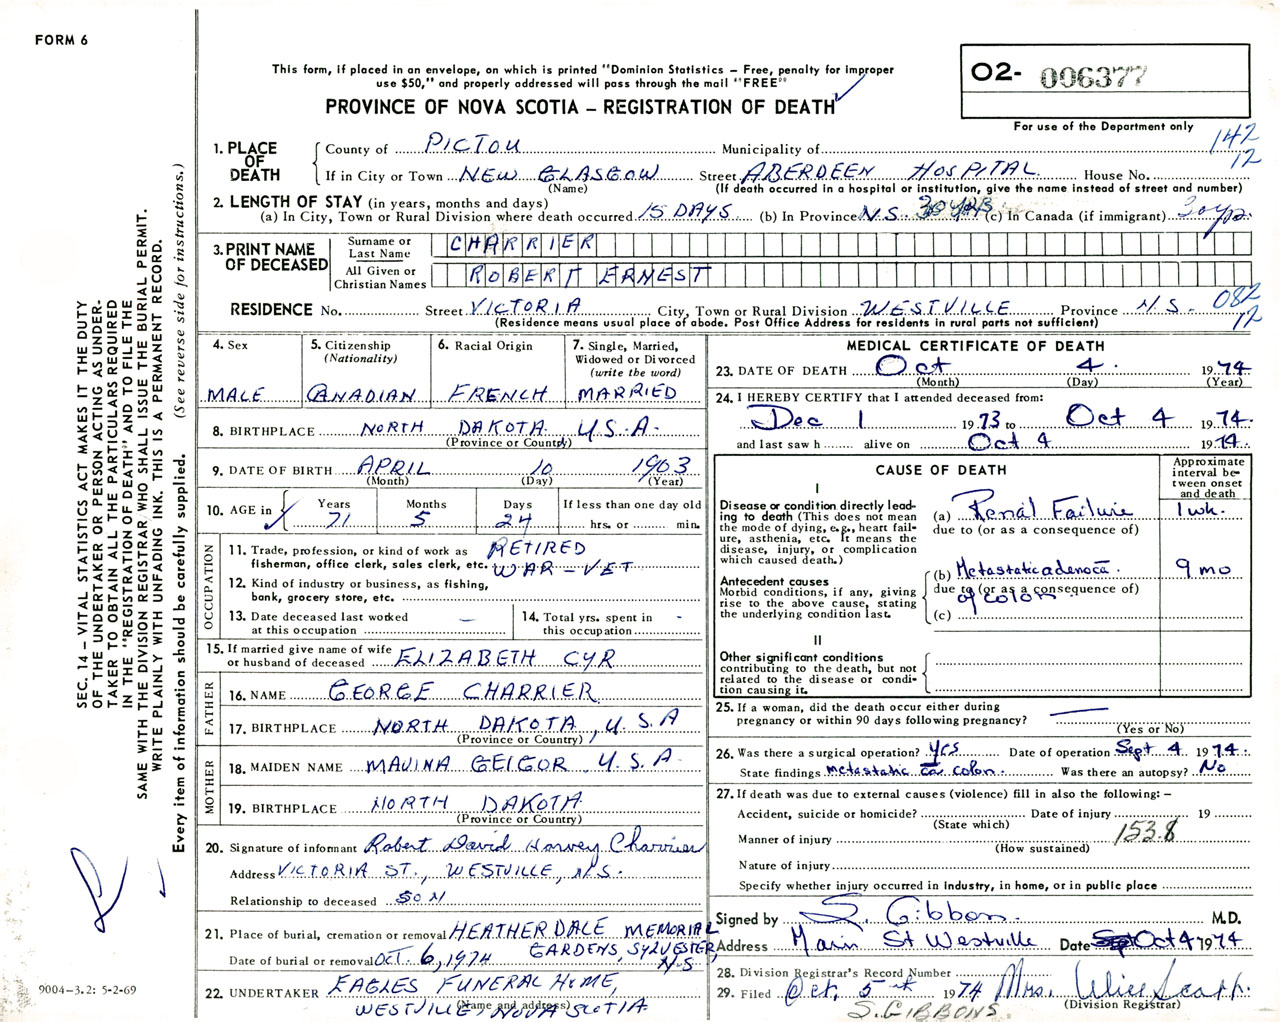 FORM 6
This form, if placed in an envelope, on which is printed "Dominion Statistics – Free, penalty for improper
use $50," and properly addressed will pass through the mail "FREE"
PROVINCE OF NOVA SCOTIA – REGISTRATION OF DEATH
O2- 006377
For use of the Department only
142
12
1. PLACE OF DEATH
County of PICTOU Municipality of
If in City or Town NEW GLASGOW Street ABERDEEN HOSPITAL House No.
(Name) (If death occurred in a hospital or institution, give the name instead of street and number)
2. LENGTH OF STAY (in years, months and days)
(a) In City, Town or Rural Division where death occurred 15 DAYS (b) In Province N.S. 30 YRS (c) In Canada (if immigrant) 30 yrs.
3. PRINT NAME OF DECEASED
Surname or Last Name CHARRIER
All Given or Christian Names ROBERT ERNEST
RESIDENCE No. Street VICTORIA City, Town or Rural Division WESTVILLE Province N.S.
082
12
(Residence means usual place of abode. Post Office Address for residents in rural parts not sufficient)
4. Sex
MALE
5. Citizenship
(Nationality)
CANADIAN
6. Racial Origin
FRENCH
7. Single, Married,
Widowed or Divorced
(write the word)
MARRIED
8. BIRTHPLACE NORTH DAKOTA U.S.A.
(Province or Country)
9. DATE OF BIRTH APRIL 10 1903
(Month) (Day) (Year)
10. AGE in
Years Months Days If less than one day old
71 5 24 hrs. or min.
OCCUPATION
11. Trade, profession, or kind of work as RETIRED
fisherman, office clerk, sales clerk, etc. WAR-VET
12. Kind of industry or business, as fishing,
bank, grocery store, etc.
13. Date deceased last worked –
at this occupation
14. Total yrs. spent in -
this occupation
15. If married give name of wife
or husband of deceased ELIZABETH CYR
FATHER
16. NAME GEORGE CHARRIER
17. BIRTHPLACE NORTH DAKOTA, U.S.A
(Province or Country)
MOTHER
18. MAIDEN NAME MAVINA GEIGOR U.S.A
19. BIRTHPLACE NORTH DAKOTA
(Province or Country)
20. Signature of informant Robert David Harvey Charrier
Address VICTORIA ST., WESTVILLE, N.S.
Relationship to deceased SON
21. Place of burial, cremation or removal HEATHERDALE MEMORIAL
GARDENS, SYLVESTER,
N.S
Date of burial or removal OCT. 6, 1974
22. UNDERTAKER EAGLES FUNERAL HOME,
WESTVILLE, NOVA SCOTIA
(Name and address)
MEDICAL CERTIFICATE OF DEATH
23. DATE OF DEATH Oct 4. 1974
(Month) (Day) (Year)
24. I HEREBY CERTIFY that I attended deceased from:
Dec 1 1973 to Oct 4 1974.
and last saw h alive on Oct 4 1974.
CAUSE OF DEATH
Approximate
interval be-
tween onset
and death
I
Disease or condition directly lead-
ing to death (This does not mean
the mode of dying, e.g., heart fail-
ure, asthenia, etc. It means the
disease, injury, or complication
which caused death.)
(a) Renal Failure 1 wk.
due to (or as a consequence of)
Antecedent causes
Morbid conditions, if any, giving
rise to the above cause, stating
the underlying condition last.
(b) Metastatic adenoca. 9 mo
due to (or as a consequence of)
of colon
(c)
II
Other significant conditions
contributing to the death, but not
related to the disease or condi-
tion causing it.
25. If a woman, did the death occur either during
pregnancy or within 90 days following pregnancy? —
(Yes or No)
26. Was there a surgical operation? Yes Date of operation Sept 4 1974.
State findings metastatic ca colon. Was there an autopsy? No
27. If death was due to external causes (violence) fill in also the following: –
Accident, suicide or homicide? Date of injury 19
(State which)
Manner of injury 153.8
(How sustained)
Nature of injury
Specify whether injury occurred in industry, in home, or in public place
Signed by S. Gibbon. M.D.
Address Main St Westville Date Oct 4 1974
28. Division Registrar's Record Number
29. Filed Oct. 5th 1974 Mrs. Alice Scapp.
(Division Registrar)
S. GIBBONS.
SEC. 14 – VITAL STATISTICS ACT MAKES IT THE DUTY
OF THE UNDERTAKER OR PERSON ACTING AS UNDER-
TAKER TO OBTAIN ALL THE PARTICULARS REQUIRED
IN THE "REGISTRATION OF DEATH" AND TO FILE THE
SAME WITH THE DIVISION REGISTRAR WHO SHALL ISSUE THE BURIAL PERMIT.
WRITE PLAINLY WITH UNFADING INK. THIS IS A PERMANENT RECORD.
Every item of information should be carefully supplied. (See reverse side for instructions.)
9004-3.2: 5-2-69